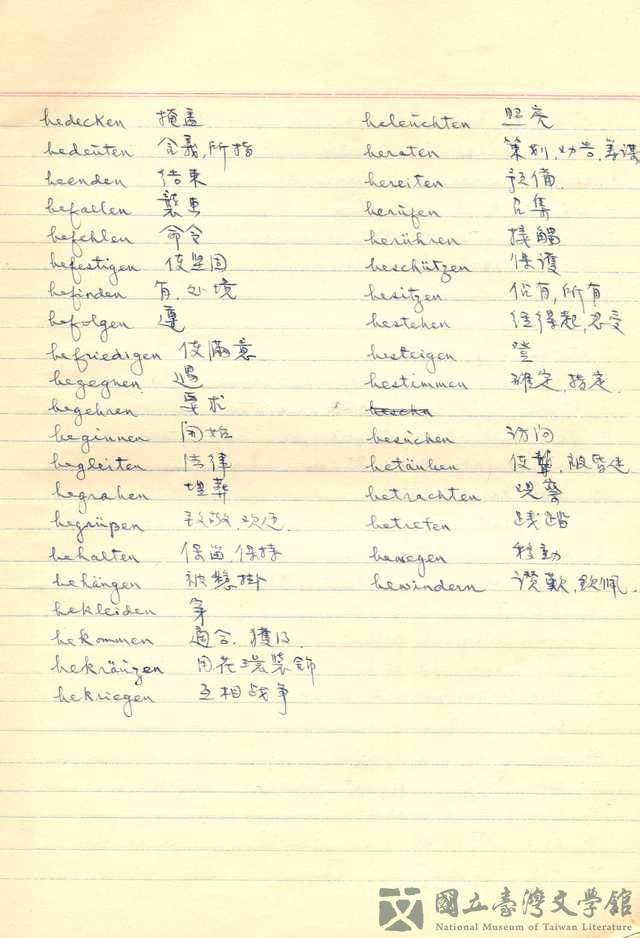 bedecken 掩盖
bedeuten 含義,所指
beenden 结束
befallen 襲患
befehlen 命令
befestigen 使坚固
befinden 有.处境
befolgen 遵
befriedigen 使滿意
begegnen 遇
begehren 要求
beginnen 開始
begleiten 法律
begraben 埋葬
begrüßen 致敬.欢迎.
behalten 保留.保持
behängen 被懸掛
bekleiden 穿
bekommen 適合.獲得.
bekränzen 用花環裝飾
bekriegen 互相战争
beleuchten 照亮
beraten 策划,劝告,筹謀
bereiten 預備.
berufen 召集
berühren 接觸
beschützen 保護
besitzen 佔有,所有
bestehen 经得起,忍受
besteigen 登
bestimmen 確定.指定.
besuchen 访问
betäuben 使聾.被昏迷
betrachten 观察
betreten 践踏
bewegen 移動
bewundern 讚歎,欽佩.
國立臺灣文學館
National Museum of Taiwan Literature